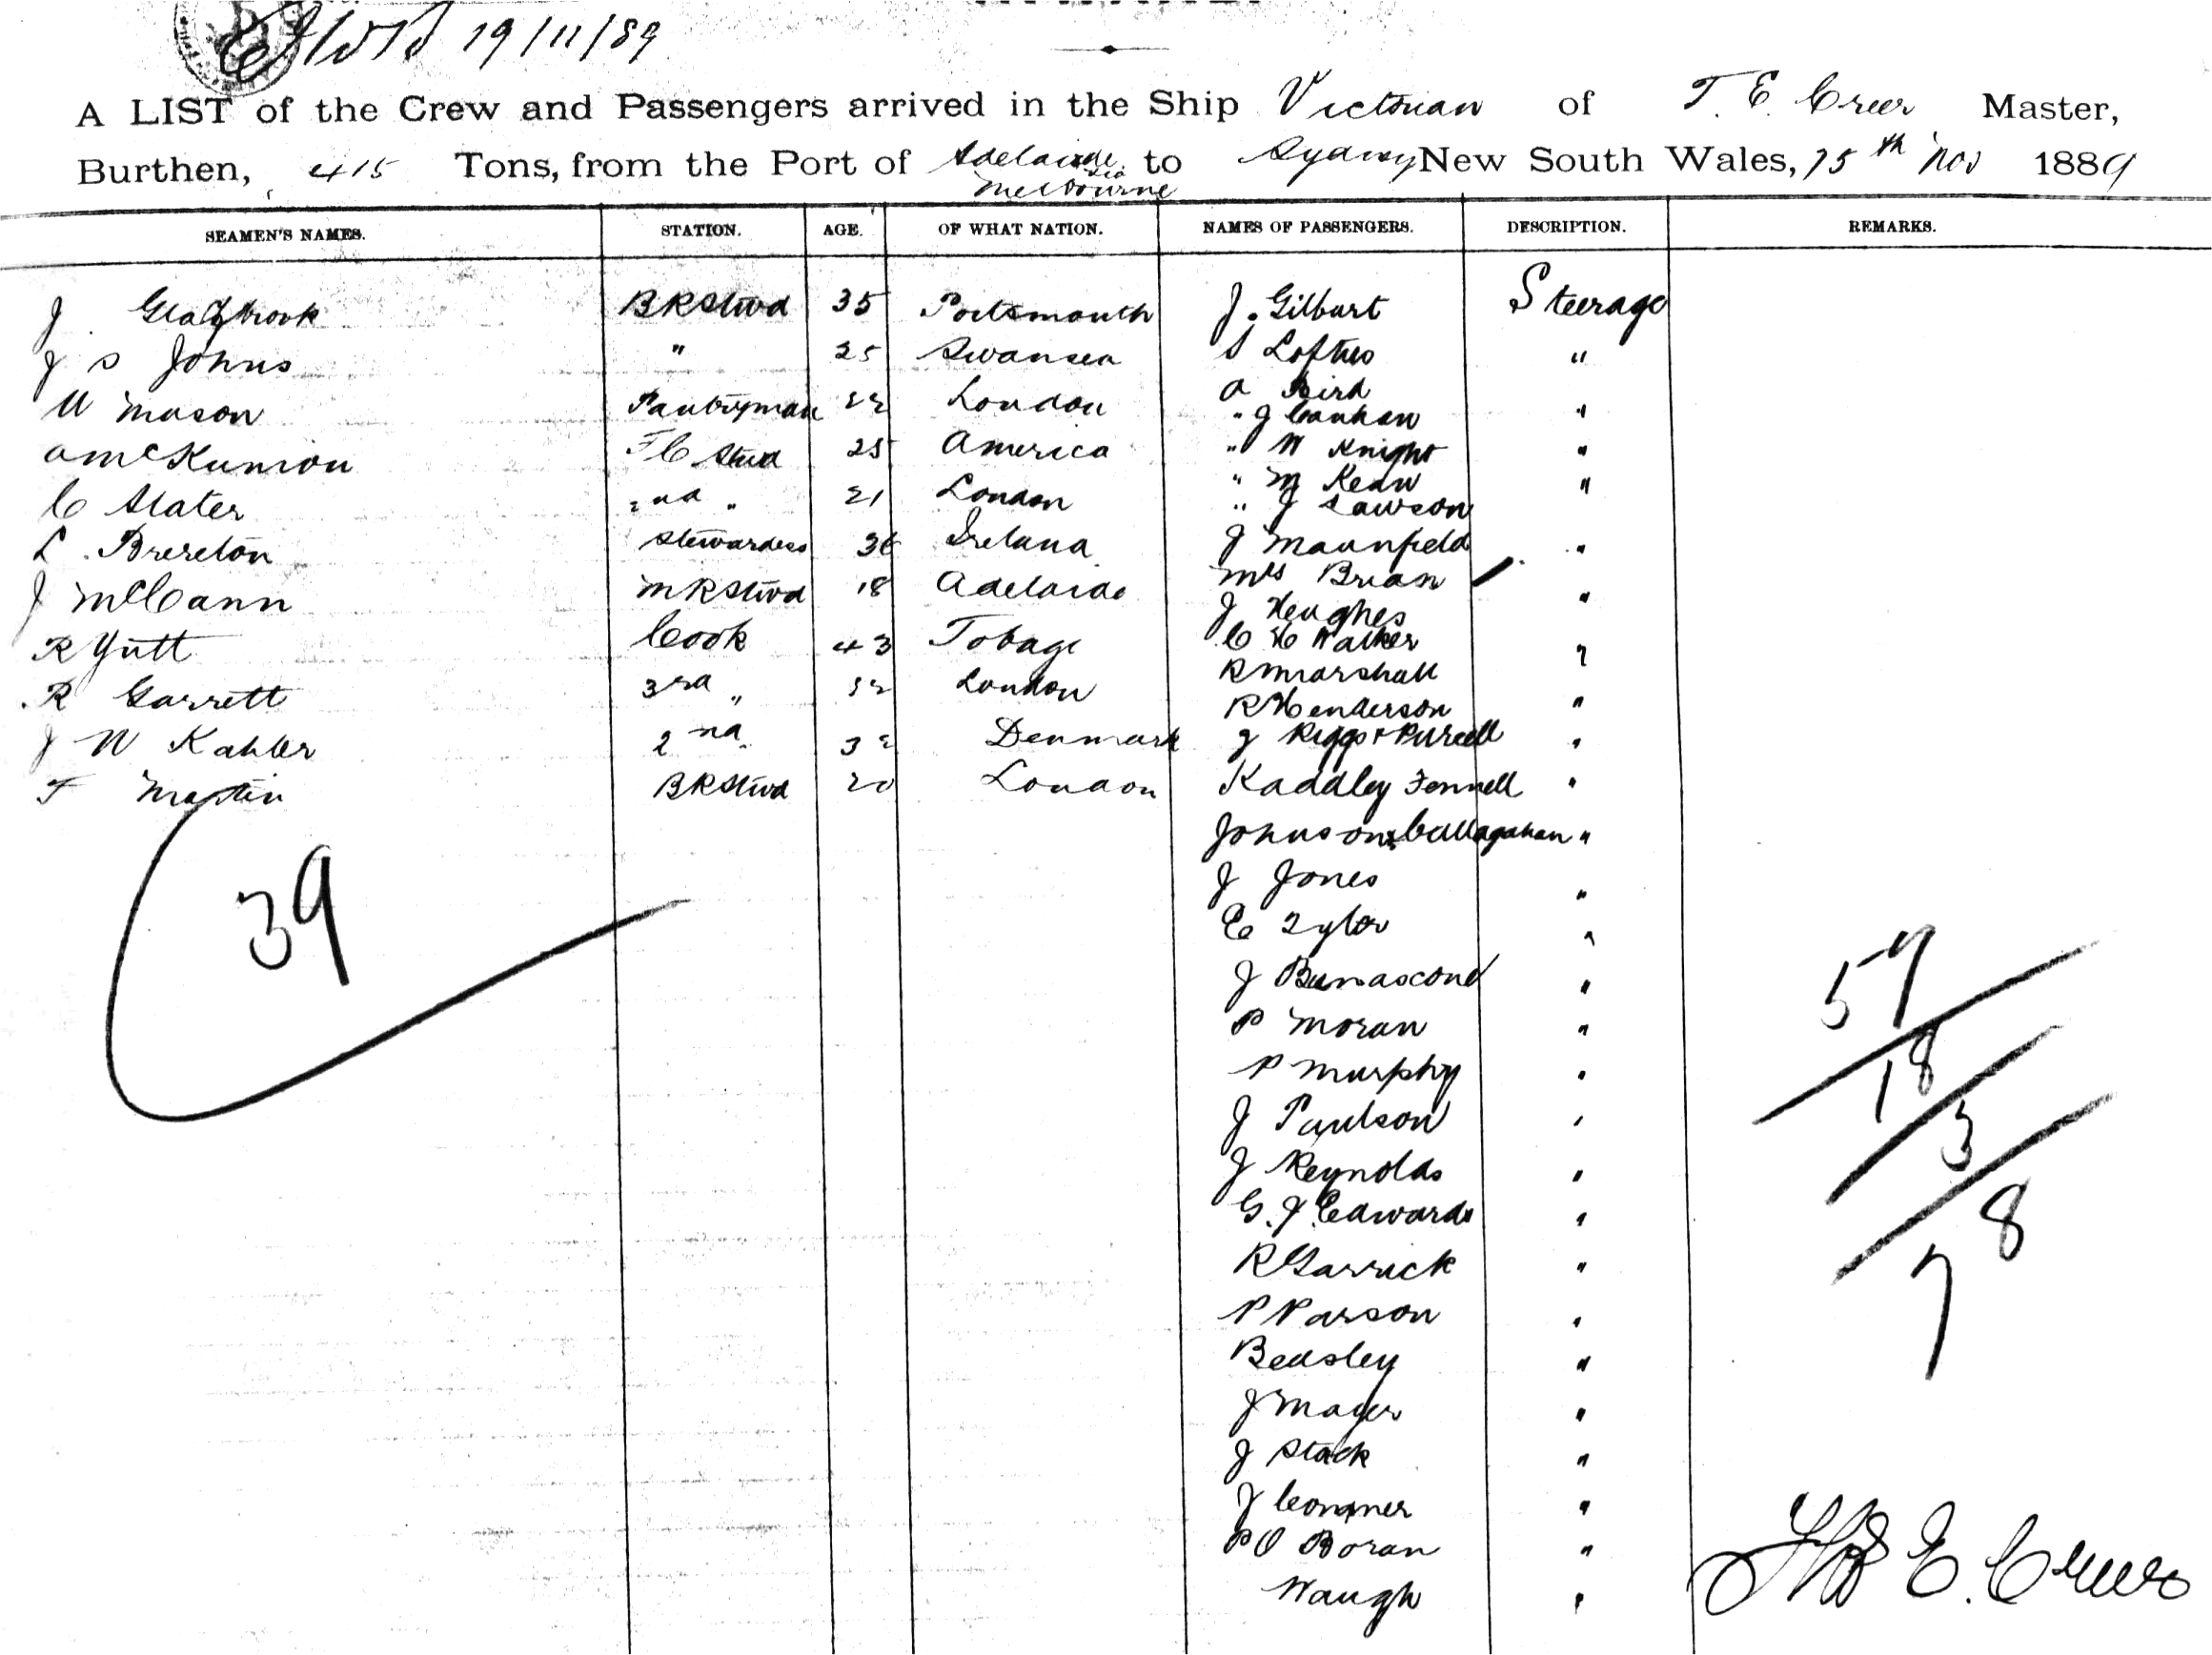 19/11/89
A LIST of the Crew and Passengers arrived in the Ship Victorian of T. E. Creer Master,
Burthen, 415 Tons, from the Port of Adelaide via Melbourne to Sydney New South Wales, 15th Nov 1889
SEAMEN'S NAMES. STATION. AGE. OF WHAT NATION. NAMES OF PASSENGERS. DESCRIPTION. REMARKS.
J Glazbrook BRStwd 35 Portsmouth J. Gilbart Steerage
J S Johns " 25 Swansea S Loftus "
W Mason Pantryman 22 London A Bird
" J Canhan "
A McKunion FC Stwd 25 America " W Knight "
C Slater 2nd " 21 London " M Kean "
" J Lawson
L. Brereton Stewardess 36 Ireland J Maunfield "
J McCann MRStwd 18 Adelaide Mrs Brian
J Heughes "
R Yutt Cook 43 Tobago C H Walker
R Garrett 3rd " London R Marshall "
R Henderson "
J W Kahler 2nd 32 Denmark J Riggs & Purcell "
T Martin BRStwd 20 London Kaddley Fennell "
Johnson & Callagahan "
39
J Jones "
E Tylor "
J "
P Moran "
P Murphy "
J Paulson "
J Reynolds "
G. J Edwards "
R Garrick "
P Parson "
Beasley "
J Mager "
J Stack "
J Conner "
P O Boran "
Waugh "
59
18
3
8
7
Thos E. Creer